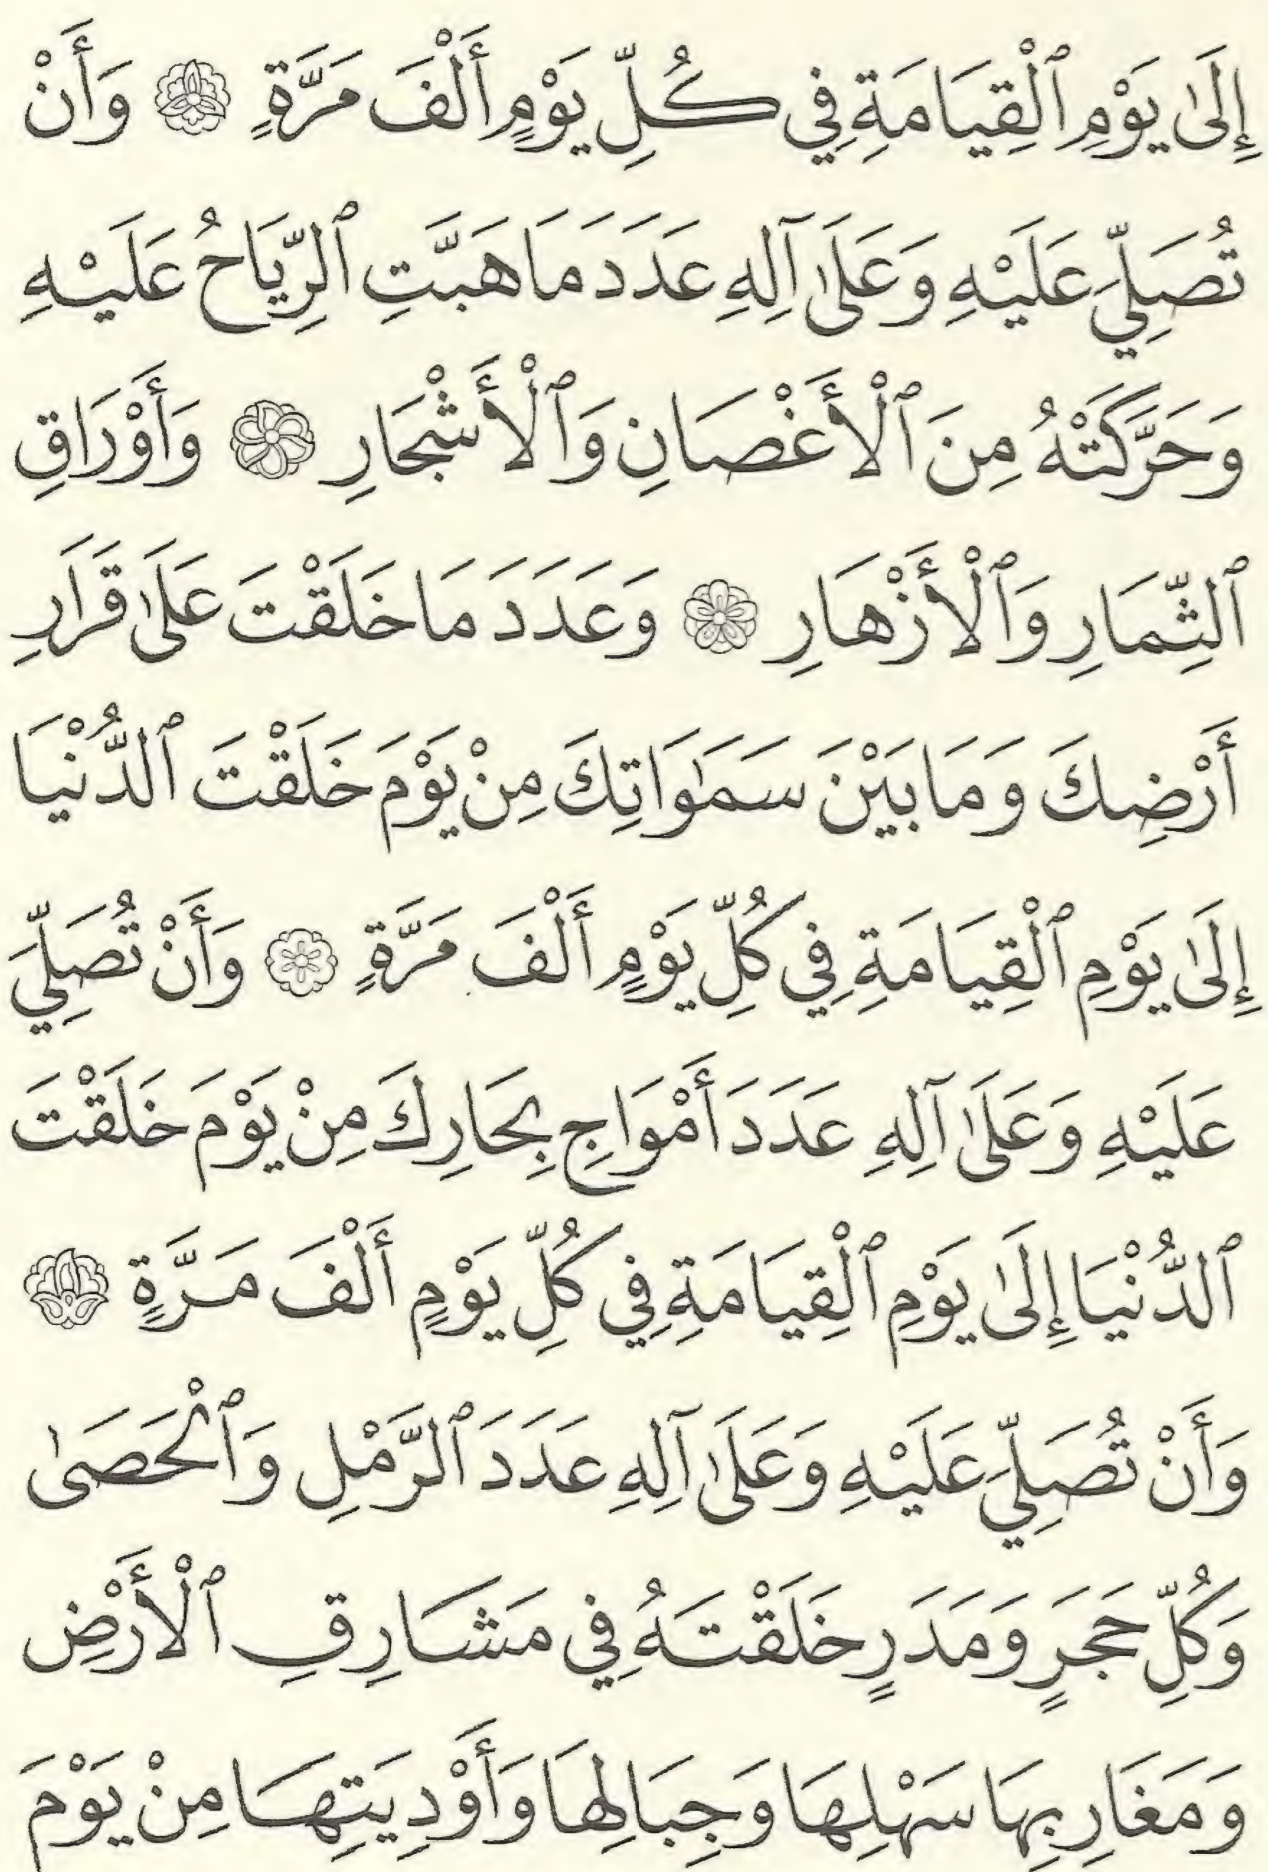 إِلَىٰ يَوْمِ ٱلْقِيَامَةِ فِي كُلِّ يَوْمٍ أَلْفَ مَرَّةٍ ۞ وَأَنْ
تُصَلِّيَ عَلَيْهِ وَعَلَىٰ آلِهِ عَدَدَ مَا هَبَّتِ ٱلرِّيَاحُ عَلَيْهِ
وَحَرَّكَتْهُ مِنَ ٱلْأَغْصَانِ وَٱلْأَشْجَارِ ۞ وَأَوْرَاقِ
ٱلثِّمَارِ وَٱلْأَزْهَارِ ۞ وَعَدَدَ مَا خَلَقْتَ عَلَىٰ قَرَارِ
أَرْضِكَ وَمَا بَيْنَ سَمَٰوَاتِكَ مِنْ يَوْمَ خَلَقْتَ ٱلدُّنْيَا
إِلَىٰ يَوْمِ ٱلْقِيَامَةِ فِي كُلِّ يَوْمٍ أَلْفَ مَرَّةٍ ۞ وَأَنْ تُصَلِّيَ
عَلَيْهِ وَعَلَىٰ آلِهِ عَدَدَ أَمْوَاجِ بِحَارِكَ مِنْ يَوْمَ خَلَقْتَ
ٱلدُّنْيَا إِلَىٰ يَوْمِ ٱلْقِيَامَةِ فِي كُلِّ يَوْمٍ أَلْفَ مَرَّةٍ ۞
وَأَنْ تُصَلِّيَ عَلَيْهِ وَعَلَىٰ آلِهِ عَدَدَ ٱلرَّمْلِ وَٱلْحَصَىٰ
وَكُلِّ حَجَرٍ وَمَدَرٍ خَلَقْتَهُ فِي مَشَارِقِ ٱلْأَرْضِ
وَمَغَارِبِهَا سَهْلِهَا وَجِبَالِهَا وَأَوْدِيَتِهَا مِنْ يَوْمَ